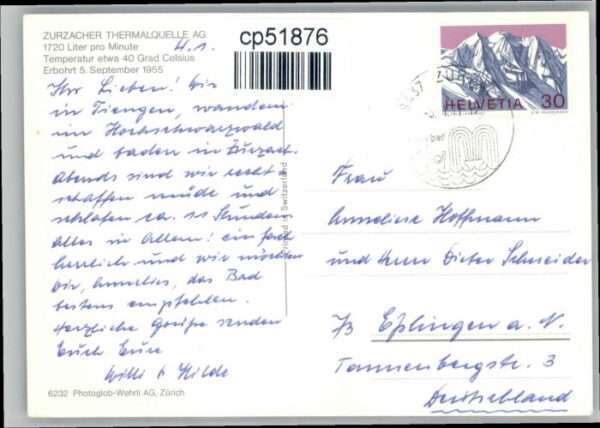 ZURZACHER THERMALQUELLE AG
1720 Liter pro Minute
Temperatur etwa 40 Grad Celsius
Erbohrt 5. September 1955
cp51876
HELVETIA 30
Ihr Lieben! Wir
in Tiengen, wandern
im Hochschwarzwald
und baden in Zurzach.
Abends sind wir recht
schaffen müde und
schlafen ca. 11 Stunden
alles in Allem! einfach
herrlich und wir möchten
Dir, Annelies, das Bad
bestens empfehlen.
Herzliche Grüße senden
Euch Eure
Willi & Hilde
6232 Photoglob-Wehrli AG, Zürich
Printed in Switzerland
8437 ZURZACH
Frau
Anneliese Hoffmann
und Herrn Dieter Schneider
73 Eßlingen a. N.
Tannenbergstr. 3
Deutschland